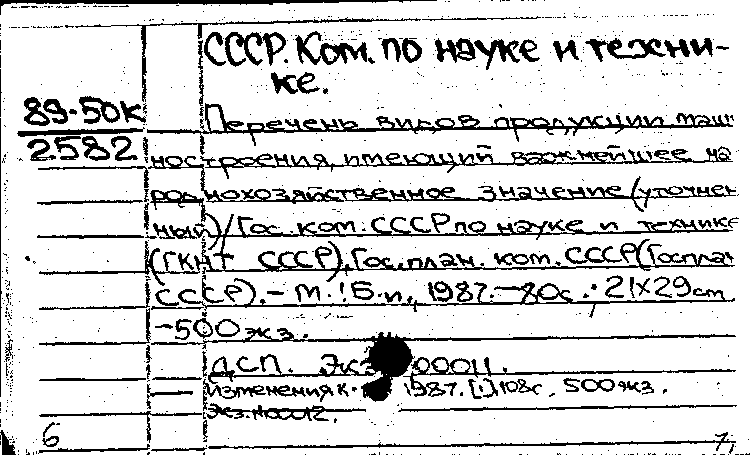 СССР. Ком. по науке и техни-
ке.
89-50к
2582
Перечень видов продукции маши
ностроения, имеющий важнейшее на
роднохозяйственное значение (уточнен
ный)/Гос. ком. СССР по науке и технике
(ГКНТ СССР), Гос. план. ком. СССР (Госплан
СССР). - М.: Б.и., 1987. - 80с.; 21х29 cm
-500 экз.
ДСП. Экз 00011.
Изменения к. 1987. [1] 108с. 500 экз.
Экз. №00012.
6